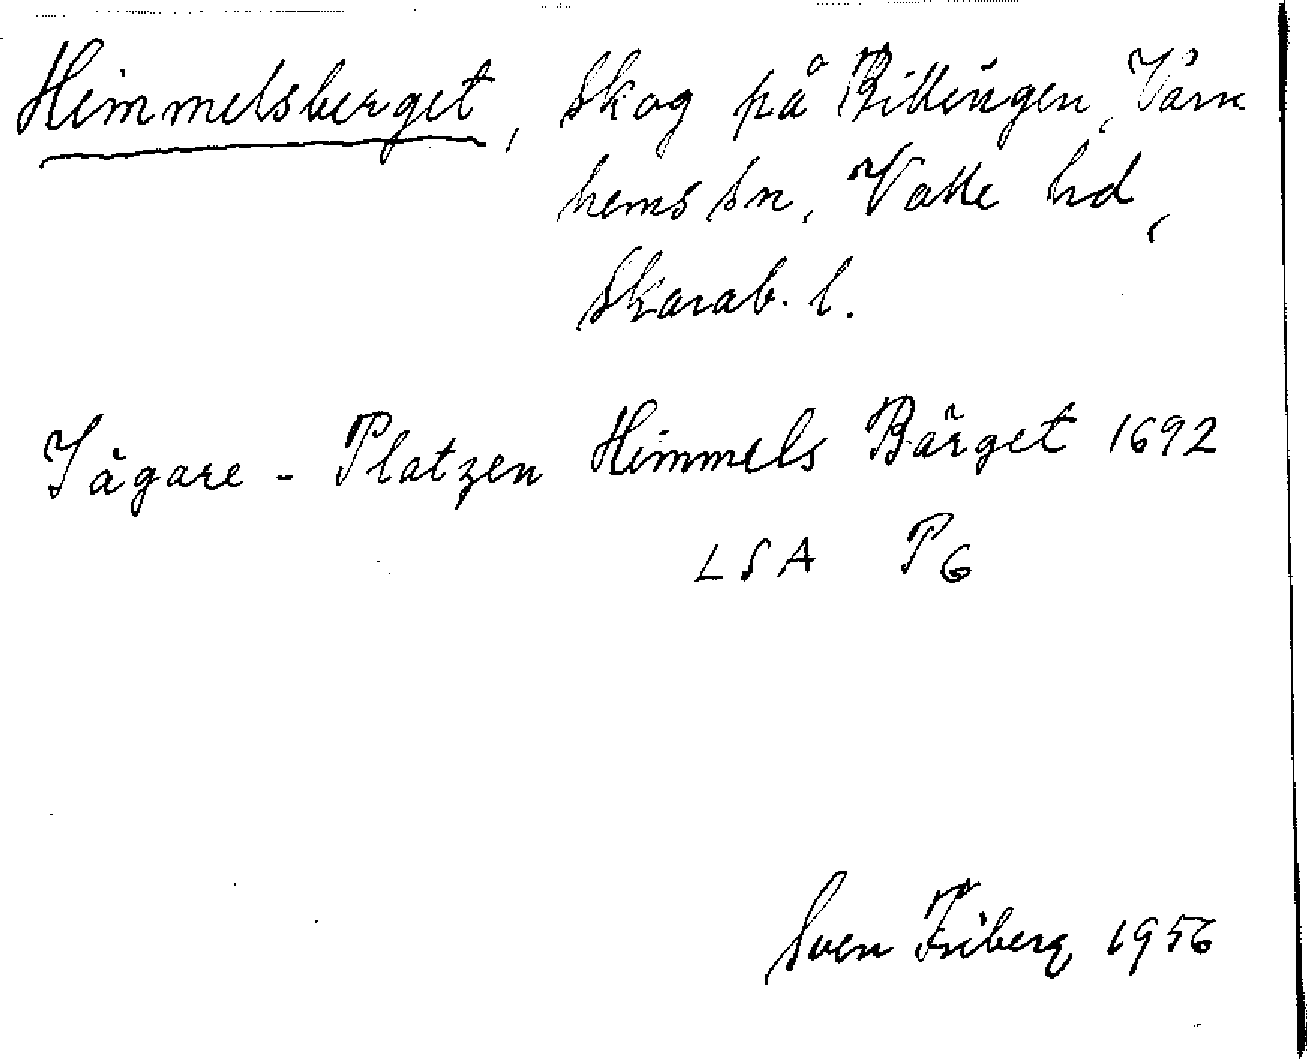 Himmelsberget, Skog på Billingen, Varn
hems sn, Valle hd,
Skarab. l.
Jägare - Platzen Himmels Bärget 1692
LSA P6
Sven Friberg 1956